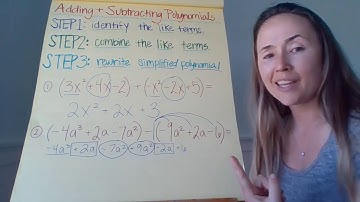 Adding + Subtracting Polynomials
STEP1: identify the like terms.
STEP2: combine the like terms.
STEP3: rewrite simplified polynomial
① (3x²+4x-2) + (-x²-2x+5) =
2x² + 2x + 3
② (-4a³+2a-7a²) - (-9a²+2a-6) =
-4a³ +2a -7a² +9a² -2a +6